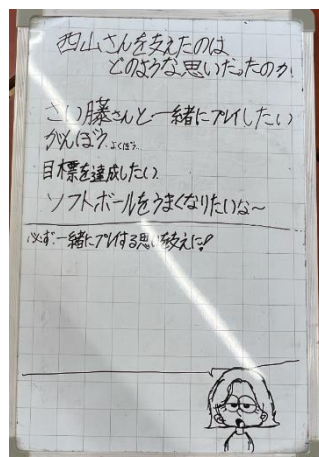 西山さんを支えたのは
どのような思いだったのか!
さい藤さんと一緒にプレイしたい
がんぼう. よくぼう..
目標を達成したい.
ソフトボールをうまくなりたいな〜
必ず.一緒にプレイする思いを支えに!